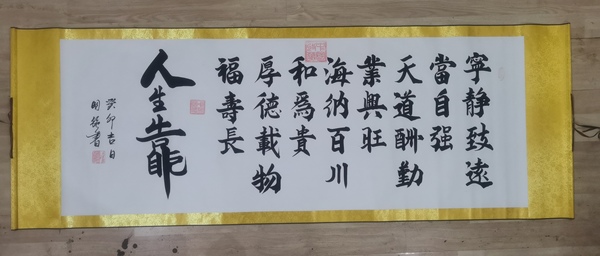 寧静致遠
當自强
天道酬勤
業興旺
海納百川
和爲貴
厚德載物
福壽長
人生
癸卯吉日
明 書